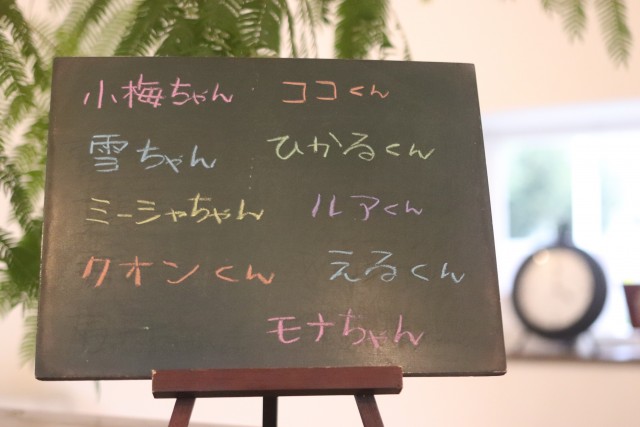 小梅ちゃん ココくん
雪ちゃん ひかるくん
ミーシャちゃん ルアくん
クオンくん えるくん
モナちゃん